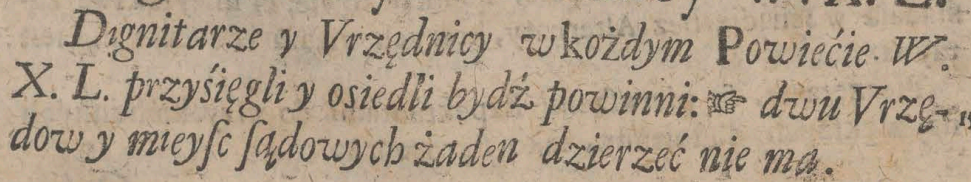 Dignitarze y Vrzędnicy w kożdym Powiećie. W.
X. L. przyśięgli y osiedli bydź powinni: ☞ dwu Vrzę-
dow y mieyſc ſądowych żaden dzierzeć nie ma.